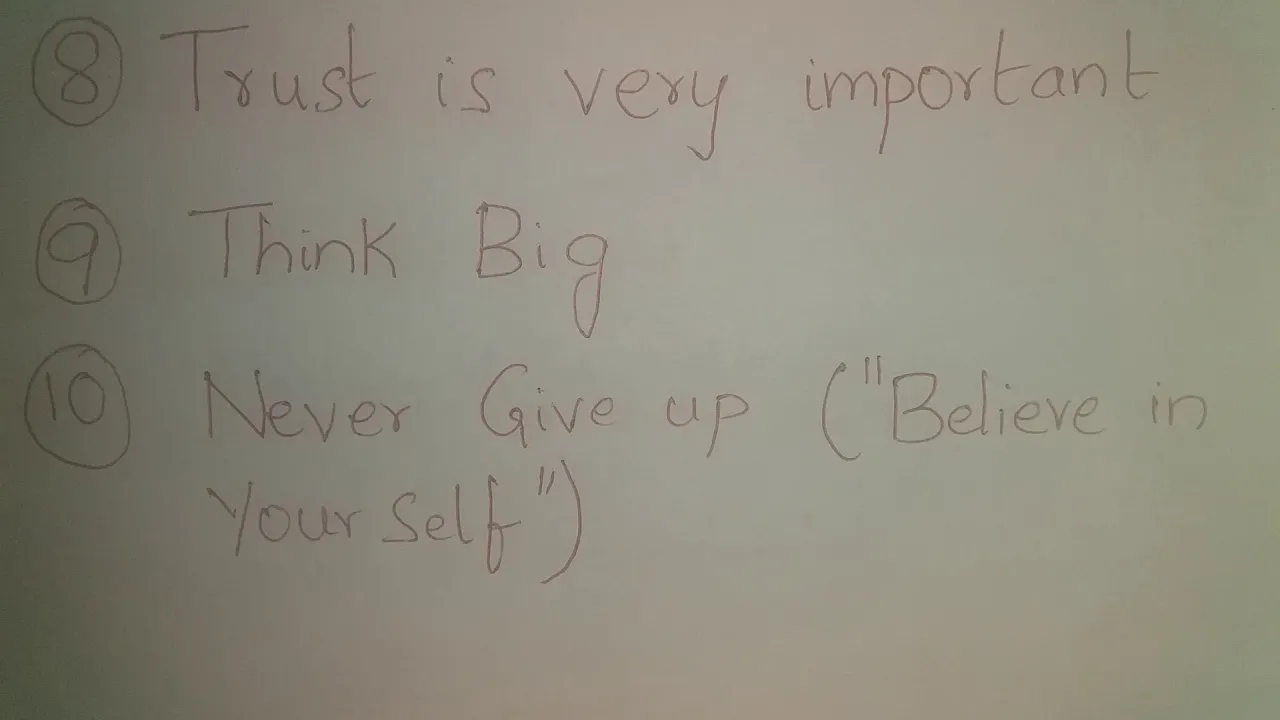 8 Trust is very important
9 Think Big
10 Never Give up ("Believe in
Your Self")